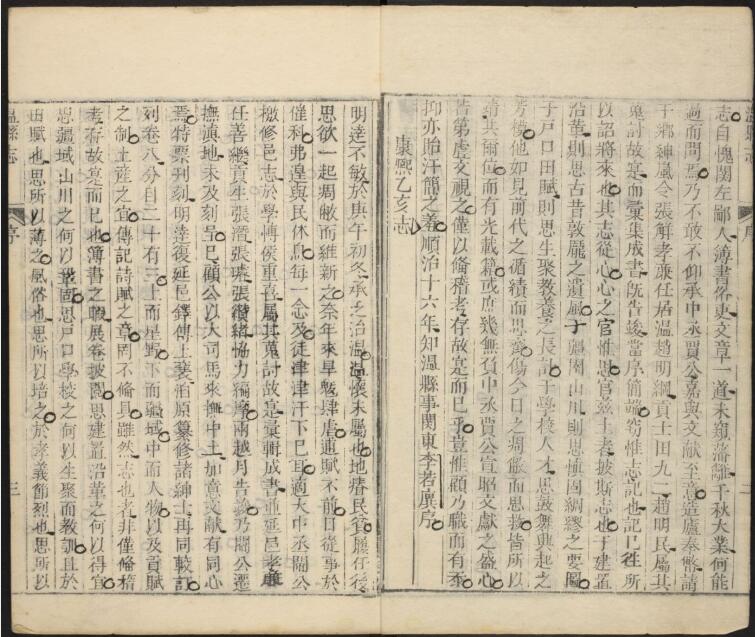 志自愧閩左鄙人簿書俗吏文章一道未窺藩離千秋大業何能
過而問焉乃不敢不仰承中丞賈公嘉與文献至意造廬奉幣請
于鄉紳風令張解孝廉任居溫趙明綱貢士田九二趙明民屬其
蒐討故寔而彙集成書旣告竣當序簡端窃惟志記也記已徃所
以詔將來也其志從心心之官惟思官兹土者披斯志也于建置
沿革則思古昔敦龐之遺風于疆圉山川則思愼固綢繆之要屬
于戶口田賦則思生聚教養之長計于學校人才思鼓舞興起之
芳模他如見前代之循績而思齊傷今日之凋敝而思救皆所以
靖共爾位而有光載籍或庶幾無負中丞賈公宣昭文獻之盛心
若第虗文視之僅以偹稽考存故寔而已乎豈惟顧乃職而有忝
抑亦貽汗簡之羞順治十六年知溫縣事関東李若廙序
康熙乙亥志
明逹不敏於庚午初冬承乏治溫溫懷末屬也地瘠民貧履任後
思欲一起凋敝而維新之奈年來旱魃肆虐逋賦不前日從事於
催科弗遑與民休息每一念及徒津津汗下已耳適大中丞閻公
檄修邑志於學博侯重喜屬其蒐討故寔彙輯成書並延邑孝廉
任菩繼貢生張濳張璂張纘緒協力編摩兩越月告竣乃閻公遷
撫滇地未及刻呈巳顧公以大司馬來撫中土加意文献有同心
焉特票刊刻明逹復延邑鐸傅士裘酒原纂修諸紳士再同較訂
列卷八分目二十有三上而星野下而疆域中而人物以及貢賦
之制土産之宜傳記詩賦之章罔不偹具雖然志也者非僅偹稽
考存故寔而已也簿書之暇展卷披閱思建置沿革之何以得宜
思疆域山川之何以鞏固思戶口學校之何以生聚而教訓且於
田賦也思所以薄之風俗也思所以培之於孝義節烈也思所以
溫縣志
序
三